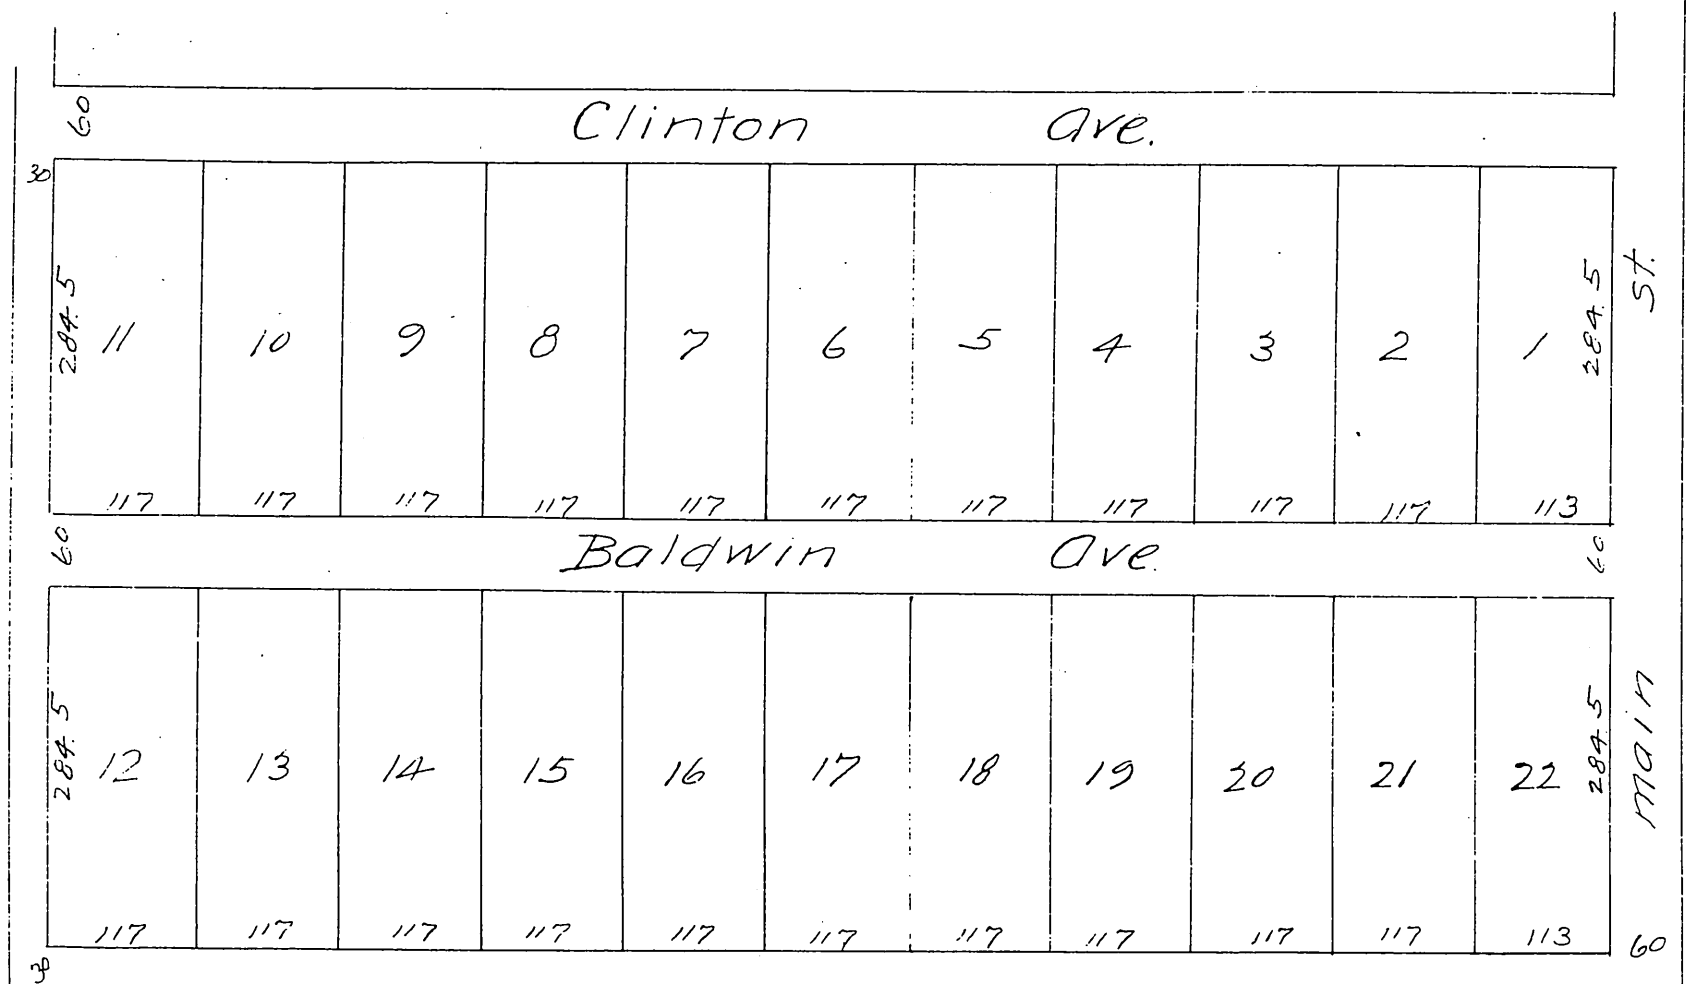 60
Clinton Ave.
30
284.5 11 10 9 8 7 6 5 4 3 2 1 284.5 St.
117 117 117 117 117 117 117 117 117 117 113
60 Baldwin Ave. 60
284.5 12 13 14 15 16 17 18 19 20 21 22 284.5 Main
117 117 117 117 117 117 117 117 117 117 113 60
30